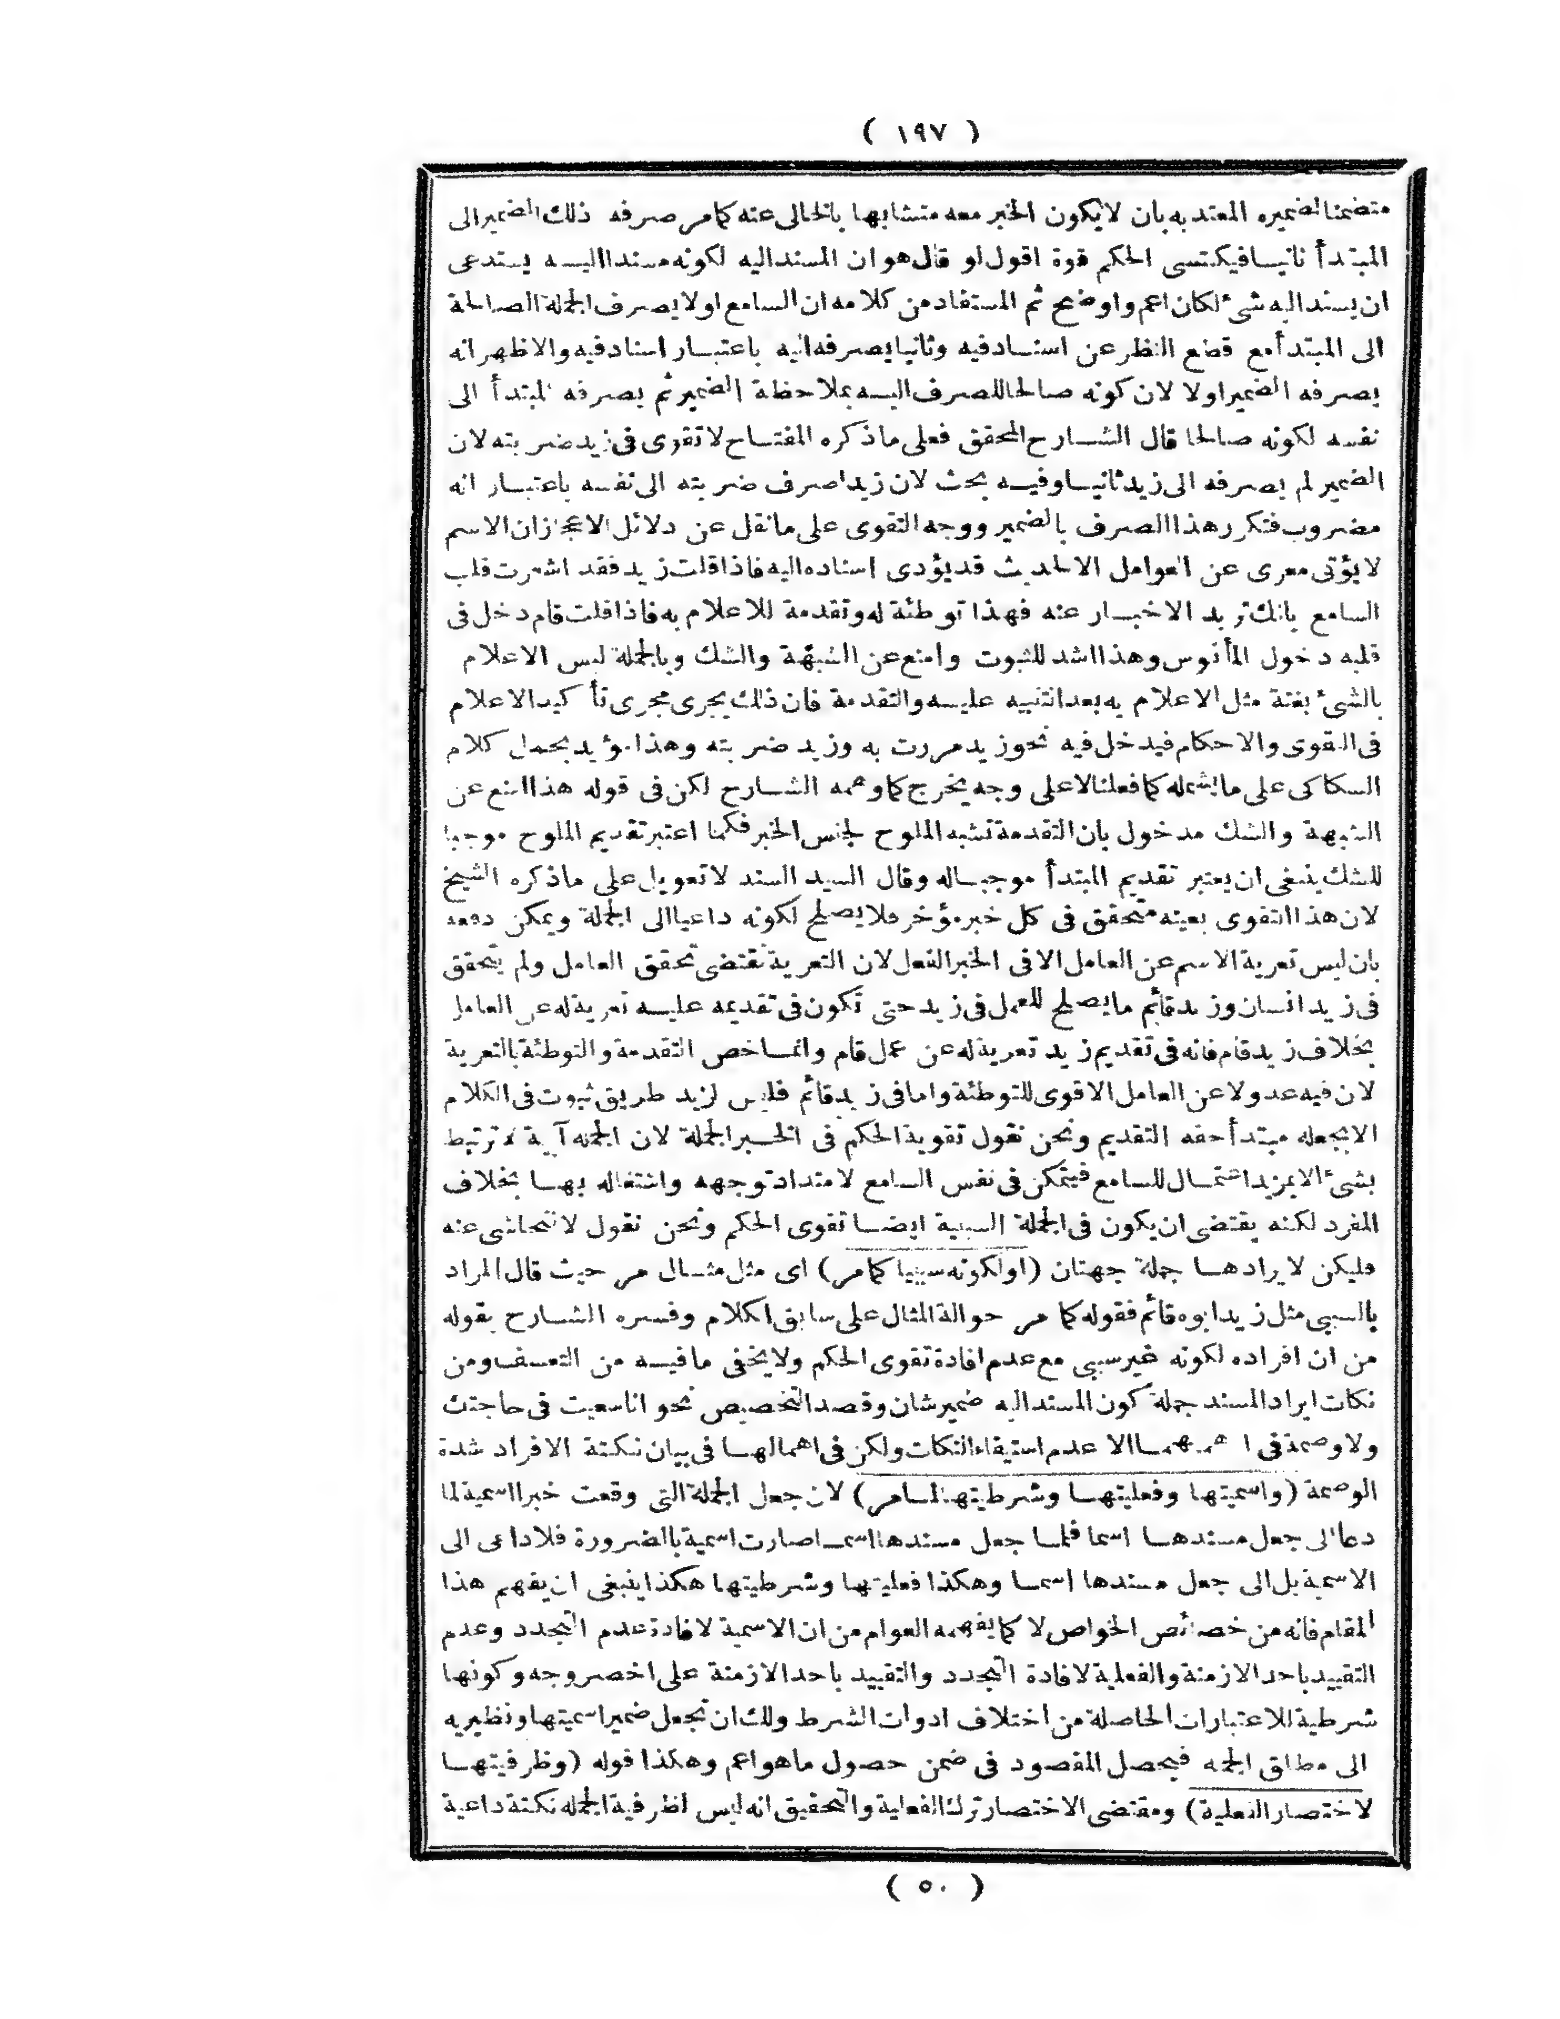 ( ١٩٧ )
متضمنا لضميره المعتد به بان لا يكون الخبر معه متشابها بالخالى عنه كما مر صرفه ذلك الضمير الى
المبتدأ ثانيا فيكتسى الحكم قوة اقول لو قال هو ان المسند اليه لكونه مسندا اليه يستدعى
ان يسند اليه شئ لكان اعم واوضح ثم المستفاد من كلامه ان السامع اولا يصرف الجملة الصالحة
الى المبتدأ مع قطع النظر عن اسناد فيه وثانيا يصرفه اليه باعتبار اسناد فيه والاظهر انه
يصرفه الضمير اولا لان كونه صالحا للصرف اليه بملاحظة الضمير ثم يصرفه المبتدأ الى
نفسه لكونه صالحا قال الشارح المحقق فعلى ما ذكره المفتاح لا تقوى فى زيد ضربته لان
الضمير لم يصرفه الى زيد ثانيا وفيه بحث لان زيدا صرف ضربته الى نفسه باعتبار انه
مضروب فتكرر هذا الصرف بالضمير ووجه التقوى على ما نقل عن دلائل الاعجاز ان الاسم
لا يؤتى معرى عن العوامل الا لحديث قد يؤدى اسناده اليه فاذا قلت زيد فقد اشعرت قلب
السامع بانك تريد الاخبار عنه فهذا توطئة له وتقدمة للاعلام به فاذا قلت قام دخل فى
قلبه دخول المأنوس وهذا اشد للثبوت وامنع عن الشبهة والشك وبالجملة ليس الاعلام
بالشئ بغتة مثل الاعلام به بعد التنبيه عليه والتقدمة فان ذلك يجرى مجرى تأكيد الاعلام
فى التقوى والاحكام فيدخل فيه نحو زيد مررت به وزيد ضربته وهذا مؤيد بحمل كلام
السكاكى على ما يشمله كما فعلنا لا على وجه يخرج كما وهمه الشارح لكن فى قوله هذا امنع عن
الشبهة والشك مدخول بان التقدمة تشبه الملوح لجنس الخبر فكما اعتبر تقديم الملوح موجبا
للشك ينبغى ان يعتبر تقديم المبتدأ موجبا له وقال السيد السند لا تعويل على ما ذكره الشيخ
لان هذا التقوى بعينه متحقق فى كل خبر مؤخر فلا يصلح لكونه داعيا الى الجملة ويمكن دفعه
بان ليس تعرية الاسم عن العامل الا فى الخبر الفعل لان التعرية تقتضى تحقق العامل ولم يتحقق
فى زيد انسان وزيد قائم ما يصلح للعمل فى زيد حتى تكون فى تقديمه عليه تعرية له عن العامل
بخلاف زيد قام فانه فى تقديم زيد تعرية له عن عمل قام وانما خص التقدمة والتوطئة بالتعرية
لان فيه عدولا عن العامل الاقوى للتوطئة واما فى زيد قائم فليس لزيد طريق ثبوت فى الكلام
الا بجعله مبتدأ حقه التقديم ونحن نقول تقوية الحكم فى الخبر الجملة لان الجملة آبية لا ترتبط
بشئ الا بمزيد اعتمال للسامع فيتمكن فى نفس السامع لامتداد توجهه واشتغاله بها بخلاف
المفرد لكنه يقتضى ان يكون فى الجملة السببية ايضا تقوى الحكم ونحن نقول لا نتحاشى عنه
فليكن لايرادها جملة جهتان (او لكونه سببيا كما مر) اى مثل مثال مر حيث قال المراد
بالسببى مثل زيد ابوه قائم فقوله كما مر حوالة المثال على سابق الكلام وفسره الشارح بقوله
من ان افراده لكونه غير سببى مع عدم افادة تقوى الحكم ولا يخفى ما فيه من التعسف ومن
نكات ايراد المسند جملة كون المسند اليه ضمير شان وقصد التخصيص نحو انا سعيت فى حاجتك
ولا وصمة فى الا عدم استيفاء النكات ولكن فى اهمالها فى بيان نكتة الافراد شدة
الوصمة (واسميتها وفعليتها وشرطيتها لما مر) لان جعل الجملة التى وقعت خبرا اسمية لما
دعا الى جعل مسندها اسما فلما جعل مسندها اسما صارت اسمية بالضرورة فلا داعى الى
الاسمية بل الى جعل مسندها اسما وهكذا فعليتها وشرطيتها هكذا ينبغى ان يفهم هذا
المقام فانه من خصائص الخواص لا كما يفهمه العوام من ان الاسمية لافادة عدم التجدد وعدم
التقييد باحد الازمنة والفعلية لافادة التجدد والتقييد باحد الازمنة على اخصر وجه وكونها
شرطية للاعتبارات الحاصلة من اختلاف ادوات الشرط ولك ان تجعل ضمير اسميتها ونظيريه
الى مطلق الجملة فيحصل المقصود فى ضمن حصول ما هو اعم وهكذا قوله (وظرفيتها
لاختصار الفعلية) ومقتضى الاختصار ترك الفعلية والتحقيق انه ليس لظرفية الجملة نكتة داعية
( ٥٠ )